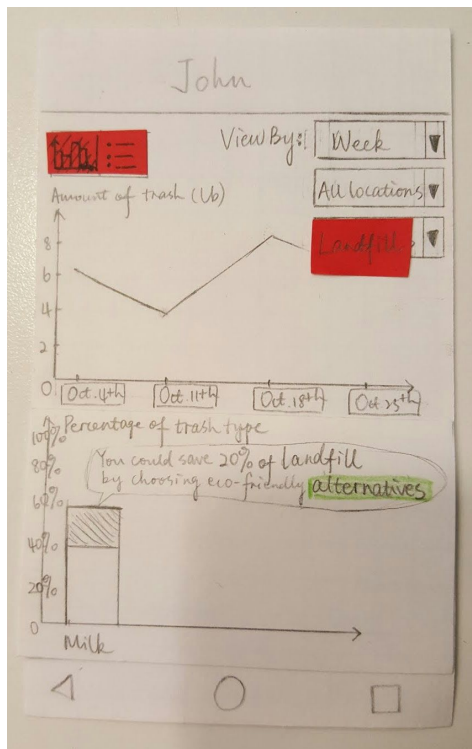 John
View By:
Week
All locations
Landfill
Amount of trash (Lb)
8
6
4
2
0
Oct. 4th
Oct. 11th
Oct. 18th
Oct 25th
Percentage of trash type
100%
80%
60%
40%
20%
0
You could save 20% of landfill
by choosing eco-friendly alternatives
Milk